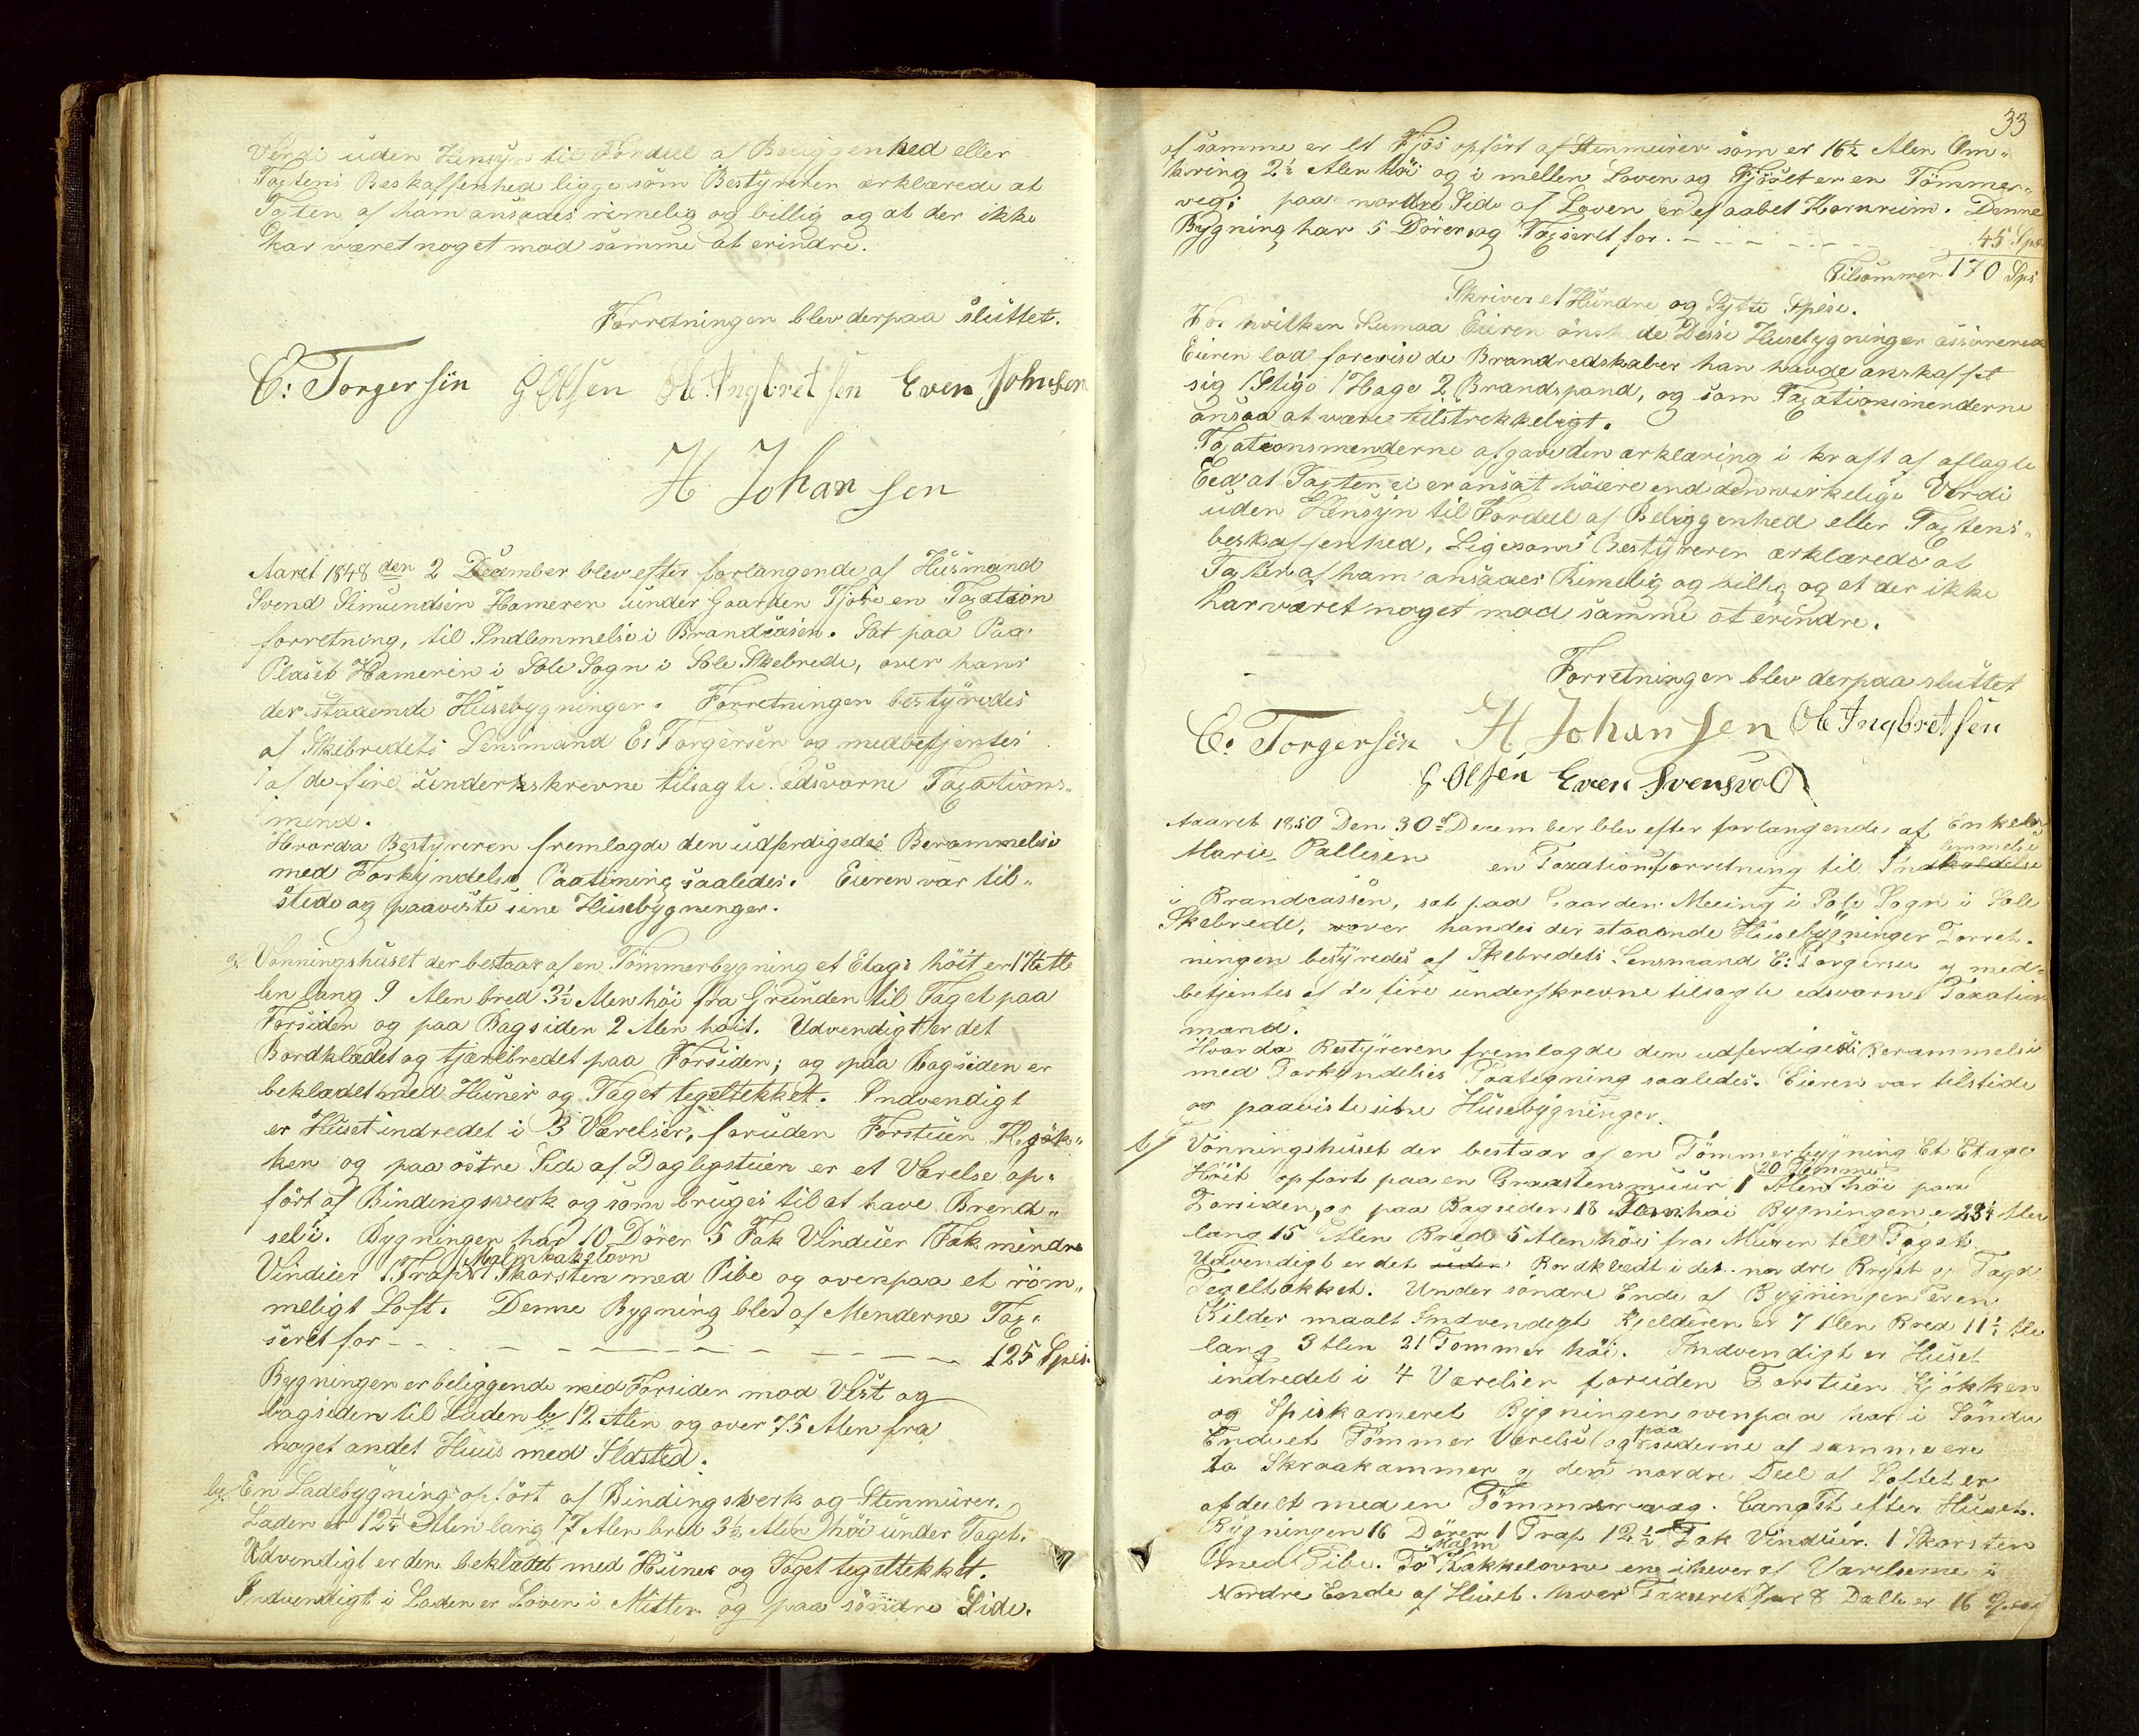 Verdi uden Hensyn til Fordeel af Beliggenhed eller
Taxtens Beskaffenhed ligge som Bestyreren ærklærede at
Taxten af ham ansaaes rimelig og billig og at der ikke
har været noget mod samme at erindre.
Forretningen blev derpaa sluttet.
E: Torgersen G Olsen Ole Ingbretsen Even Johnsen
H Johansen
Aaret 1848 den 2 December blev efter forlangende af Husmand
Svend Simundsen Hameren under Gaarden Tjore en Taxation
forretning, til Indlemmelse i Brandcasen. Sat paa Paa
Plaset Hameren i Sole Sogn i Sole Skebrede, over hans
der staaende Husebygninger. Forretningen bestyredes
af Skebredets Lensmand E: Torgersen og medbetjentes
af de fire underskrevne tilsagte edsvorne Taxations-
mend.
Hvorda Bestyreren fremlagde den udferdigede Berammelse
med Forkyndelse Paatening saaledes. Eieren var til-
stede og paaviste sine Husebygnenger.
a, Vonningshuset der bestaar af en Tömmerbygning et Etage höit er 17½ Al-
len lang 9 Alen bred 3½ Alen höi fra Grunden til Taget paa
Forsiden og paa Bagsiden 2 Alen hoit. Udvendigt er det
Bordklædet og tjærebredet paa Forsiden; og paa Bagsiden er
beklædet med Huner og Taget tegeltekket. Indvendigt
er Huset indredet i 3 Værelser, foruden Forstuen Kjök-
ken og paa östre Side af Dagligstuen er et Værelse op-
fört af Bindingsverk og som bruges til at have Brend-
sel i. Bygningen har 10 Dörer 5 Fak Vinduer 1 Fak mindre
Malmkakelovn
Vinduer 1 Trap 1 Skorsten med Pibe og ovenpaa et röm-
meligt Loft. Denne Bygning blev af Menderne Tax-
seret for - - - - - - - - - 125 Spes.
Bygningen er beliggende med Forsiden mod Vest og
bagsiden til Laden by 12 Alen og over 75 Alen fra
noget andet Huus med Ildsted.
by En Ladebygning opfört af Bindingsverk og Stenmurer.
Laden er 12¼ Alen lang 7 Alen bred 3½ Alen höi under Taget.
Udvendigt er den beklædet med Huner og Taget tegeltekket.
Indvendigt i Laden er Loven i Mitten og paa söndre Side.
33
af samme er et Fjös opfört af Stenmurer som er 16½ Alen Om-
kring 2½ Alen höi og i mellen Loven og Fjöset er en Tömmer-
veg; paa nordre Side af Loven er et aabet Kornrum. Denne
Bygning har 5 Dörer og Taxseret for - - - - - 45 Spe
Tilsammen 170 Sps
Skriver et Hundre og Sytti Spesi.
For hvilken Suma Eieren önskede Disse Husebygninger assurered
Eieren lod forevise de Brandredskaber han havde anskaffet
sig 1 Stige 1 Hage 2 Brandspand, og som Taxationsmenderne
ansaa at være tilstrekkeligt.
Taxationsmenderne afgave den ærklæring i kraft af aflagte
Eed at Taxten ei er ansat höiere end den virkelige Verdi
uden Hensyn til Fordeel af Beliggenhed eller Taxtens
beskaffenhed, Ligesom Bestyreren ærklærede at
Taxten af ham ansaaes Rimelig og billig og at der ikke
har været noget mod samme at erindre.
Forretningen blev derpaa sluttet
E: Torgersen H Johansen Ole Ingbretsen
G Olsen Even Svensvold
Aaret 1850 Den 30te December blev efter forlangende af Enken
Marie Pallesen en Taxationsforretning til Indholdelse
lemmelse
i Brandcassen, sat paa Gaarden Meeing i Sole Sogn i Sole
Skebrede, over handes der staaende Husebygninger Forret-
ningen bestyredes af Skebredets Lensmand E: Torgersen og med-
betjentes af de fire underskrevne tilsagte edsvorne Taxation
mænd.
Hvorda Bestyreren fremlagde den udferdigede Berammelse
med Forkyndelses Paategning saaledes. Eieren var tilstede
og paaviste sine Husebygninger.
Vonningshuset der bestaar af en Tömmerbygning Et Etage
20 Tomme
Höit opfort paa en Graastensmuur 1 Alen höi paa
Forsiden, og paa Bagsiden 18 Tom höi Bygningen er 23¼ Alen
lang 15 Alen Bred 5 Alen höi fra Muren til Taget.
Udvendigt er det uden Bordklædt i det nordre Bryst og Taget
Tegeltækket. Under söndre Ende af Bygningen er en
Kilder maalt Indvendigt Kjelderen er 7 Alen Bred 11½ Ale
lang 3 Alen 21 Tommer höi. Indvendigt er Huset
indredet i 4 Værelser foruden Forstuen Kjökken
og Spiskameret Bygningen ovenpaa har i Söndre
paa
Ende et Tömmer Værelse og siderne af samme ere
to Skraakammer og den nordre Deel af Loftet er
afdeelt med en Tömmervæg. langst efter Huset.
Bygningen 16 Dörer 1 Trap 12½ Fak Vinduer. 1 Skorsten
Malm
med Pibe. To Kakkelovne en i hver af Værelserne i
Nordre Ende af Huset. hver Taxseret for 8 Daller 16 Spesi